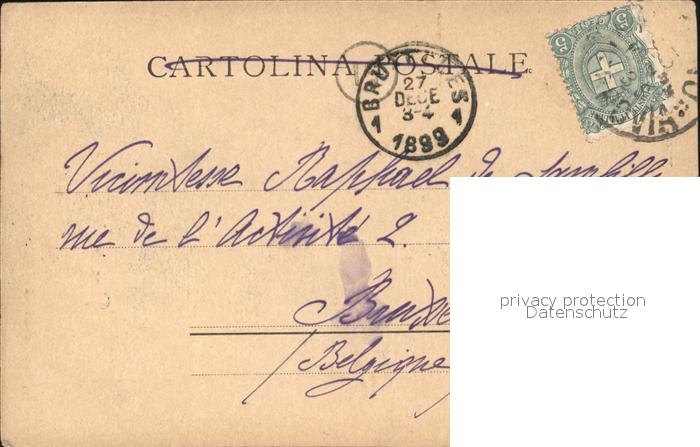 CARTOLINA POSTALE
BRUXELLES
27
DECE
3-4
1 1
1899
CENT. 5
Vicomtesse Raphael de
rue de l'Activité 2.
(Belgique
privacy protection
Datenschutz